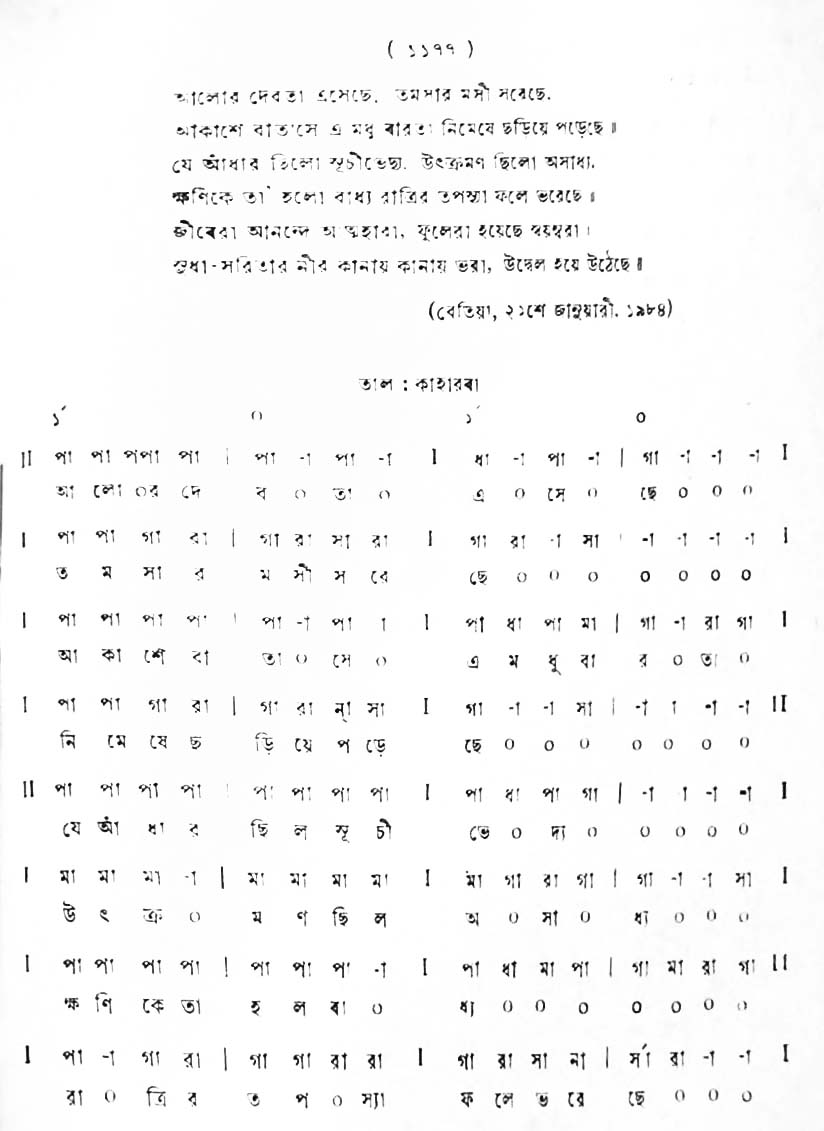 ( ১১৭৭ )
আলোর দেবতা এসেছে, তমসার মসী সরেছে.
আকাশে বাতাসে এ মধু বারতা নিমেষে ছড়িয়ে পড়েছে ॥
যে আঁধার ছিলো সূচীভেদ্য, উৎক্রমণ ছিলো অসাধ্য,
ক্ষণিকে তা' হলো বাধ্য রাত্রির তপস্যা ফলে ভরেছে ॥
জীবেরা আনন্দে আত্মহারা, ফুলেরা হয়েছে স্বয়ম্বরা ।
সুধা-সরিতার নীর কানায় কানায় ভরা, উদ্বেল হয়ে উঠেছে ॥
(বেতিয়া, ২১শে জানুয়ারী. ১৯৮৪)
তাল : কাহারবা
১́ ০ ১́ ০
II পা পা পপা পা | পা -া পা -া I ধা -া পা -া | গা -া -া -া I
আ লো ০র দে ব ০ তা ০ এ ০ সে ০ ছে ০ ০ ০
I পা পা গা রা | গা রা সা রা I গা রা -া সা | -া -া -া -া I
ত ম সা র ম সী স রে ছে ০ ০ ০ ০ ০ ০ ০
I পা পা পা পা | পা -া পা া I পা ধা পা মা | গা -া রা গা I
আ কা শে বা তা ০ সে ০ এ ম ধু বা র ০ তা ০
I পা পা গা রা | গা রা ন্ সা I গা -া -া সা | -া া -া -া II
নি মে ষে ছ ড়ি য়ে প ড়ে ছে ০ ০ ০ ০ ০ ০ ০
II পা পা পা পা | পা পা পা পা I পা ধা পা গা | -া া -া -া I
যে আঁ ধা র ছি ল সূ চী ভে ০ দ্য ০ ০ ০ ০ ০
I মা মা মা -া | মা মা মা মা I মা গা রা গা | গা -া -া সা I
উ ৎ ক্র ০ ম ণ ছি ল অ ০ সা ০ ধ্য ০ ০ ০
I পা পা পা পা | পা পা পা -া I পা ধা মা পা | গা মা রা গা II
ক্ষ ণি কে তা হ ল বা ০ ধ্য ০ ০ ০ ০ ০ ০ ০
I পা -া গা রা | গা গা রা রা I গা রা সা না | র্সা রা -া -া I
রা ০ ত্রি র ত প ০ স্যা ফ লে ভ রে ছে ০ ০ ০